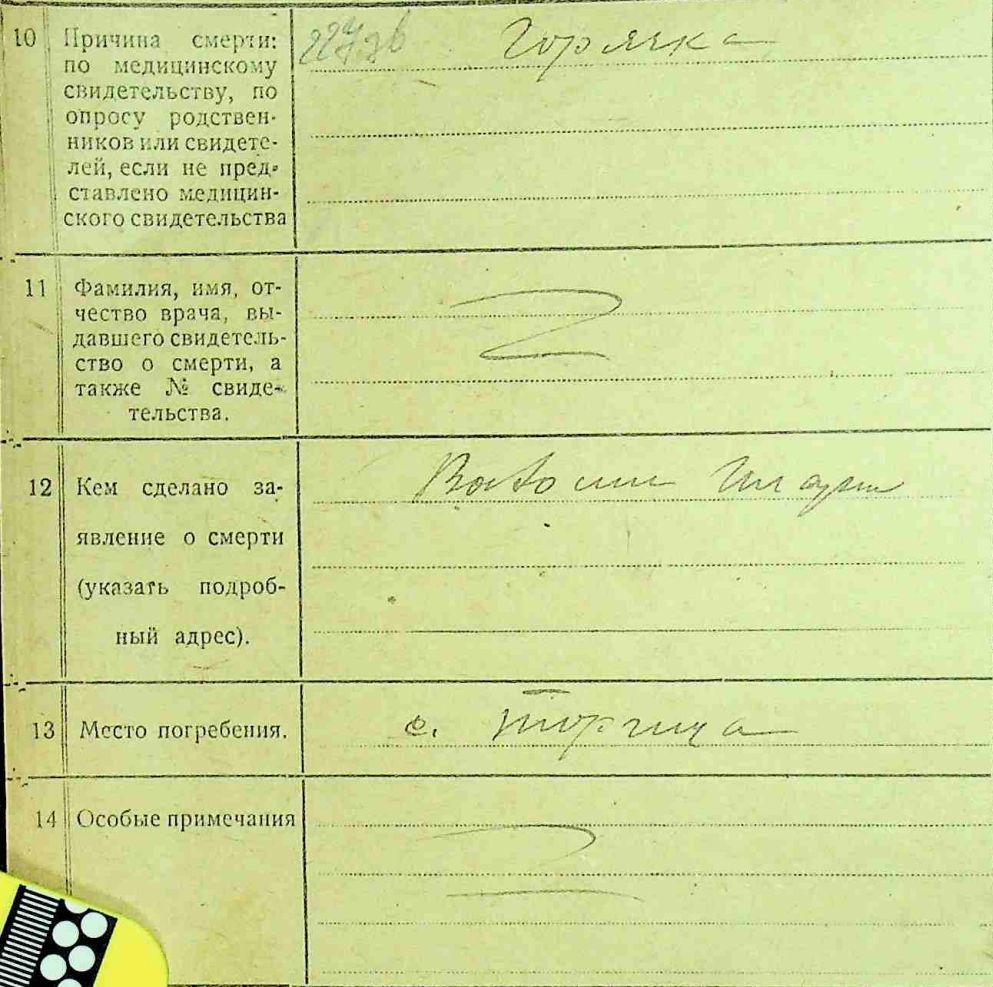 10 Причина смерти:
по медицинскому
свидетельству, по
опросу родствен-
ников или свидете-
лей, если не пред-
ставлено медицин-
ского свидетельства
Горячка
11 Фамилия, имя, от-
чество врача, вы-
давшего свидетель-
ство о смерти, а
также № свиде-
тельства.
12 Кем сделано за-
явление о смерти
(указать подроб-
ный адрес).
13 Место погребения.
с.
14 Особые примечания